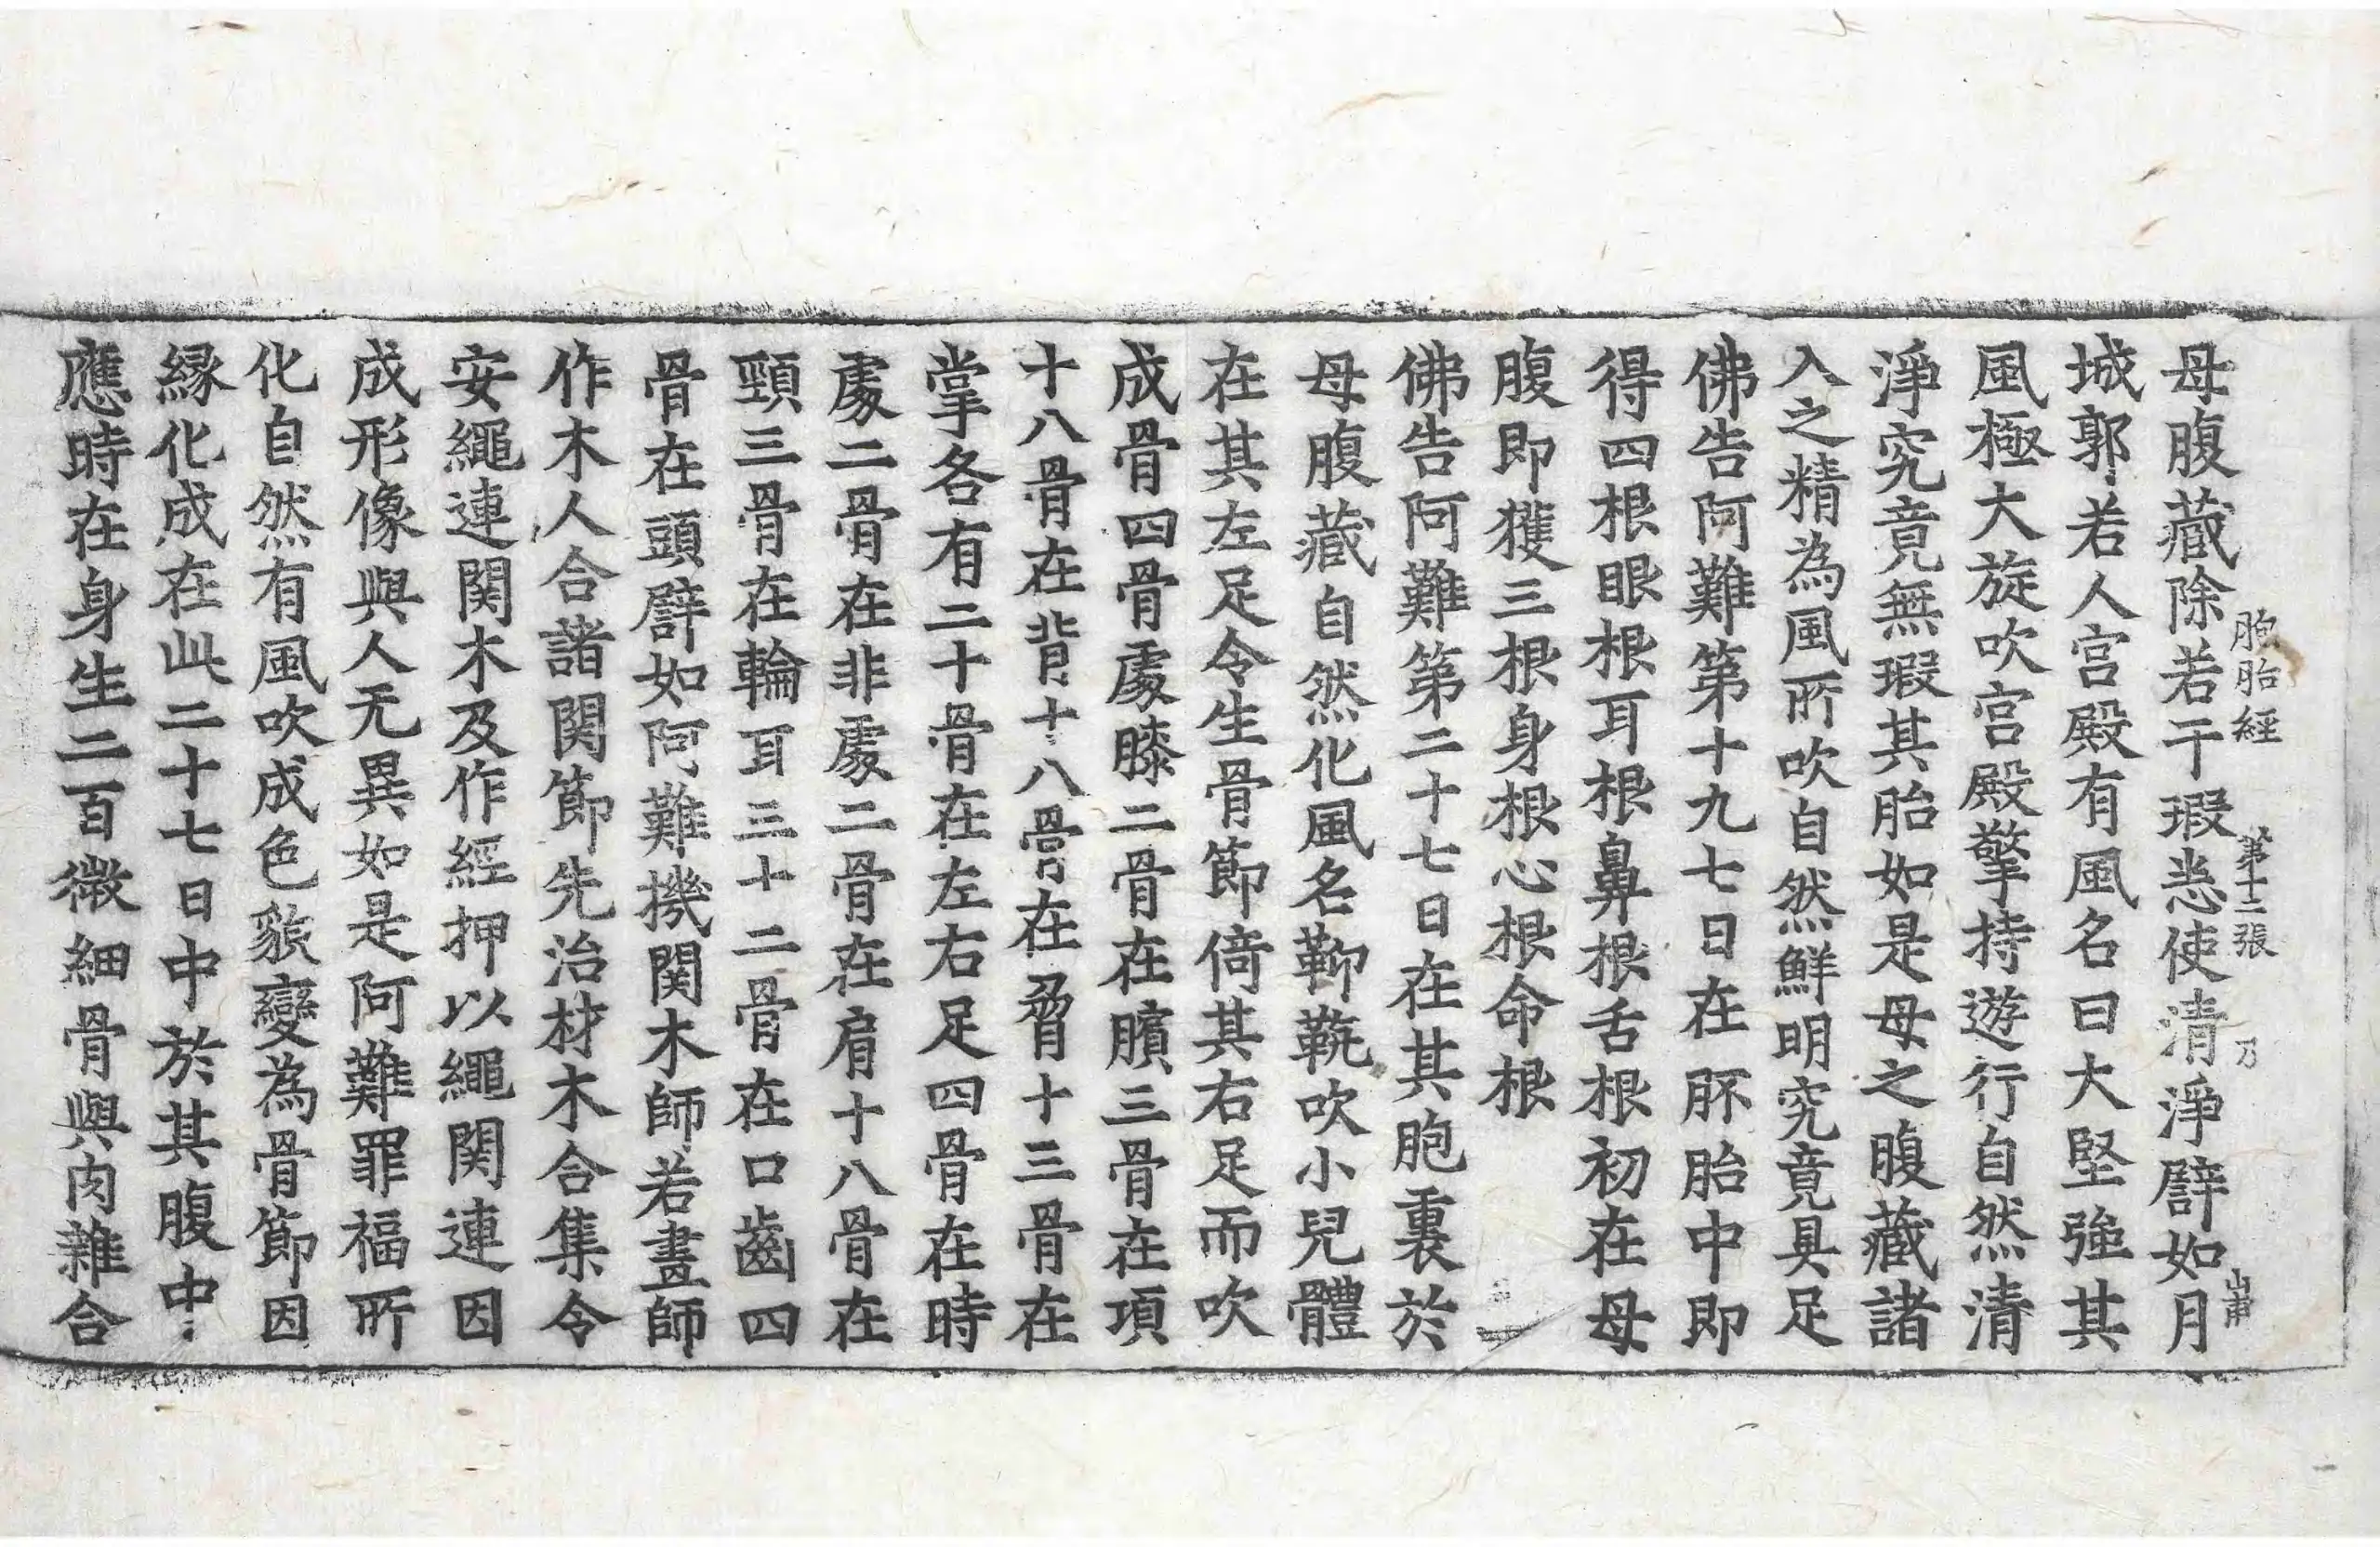 母腹藏除若干瑕悉使清淨譬如月
胞胎經 第十二張 乃 山甫
城郭若人宮殿有風名曰大堅強其
風極大旋吹宮殿擎持遊行自然清
淨究竟無瑕其胎如是母之腹藏諸
入之精為風所吹自然鮮明究竟具足
佛告阿難第十九七日在胚胎中即
得四根眼根耳根鼻根舌根初在母
腹即獲三根身根心根命根
佛告阿難第二十七日在其胞裏於
母腹藏自然化風名鞕鞔吹小兒體
在其左足令生骨節倚其右足而吹
成骨四骨處膝二骨在臏三骨在項
十八骨在背十八骨在脅十三骨在
掌各有二十骨在左右足四骨在時
處二骨在非處二骨在肩十八骨在
頸三骨在輪耳三十二骨在口齒四
骨在頭譬如阿難機関木師若畫師
作木人合諸関節先治材木合集令
安繩連関木及作經押以繩関連因
成形像與人无異如是阿難罪福所
化自然有風吹成色貌變為骨節因
緣化成在此二十七日中於其腹中
應時在身生二百微細骨與肉雜合